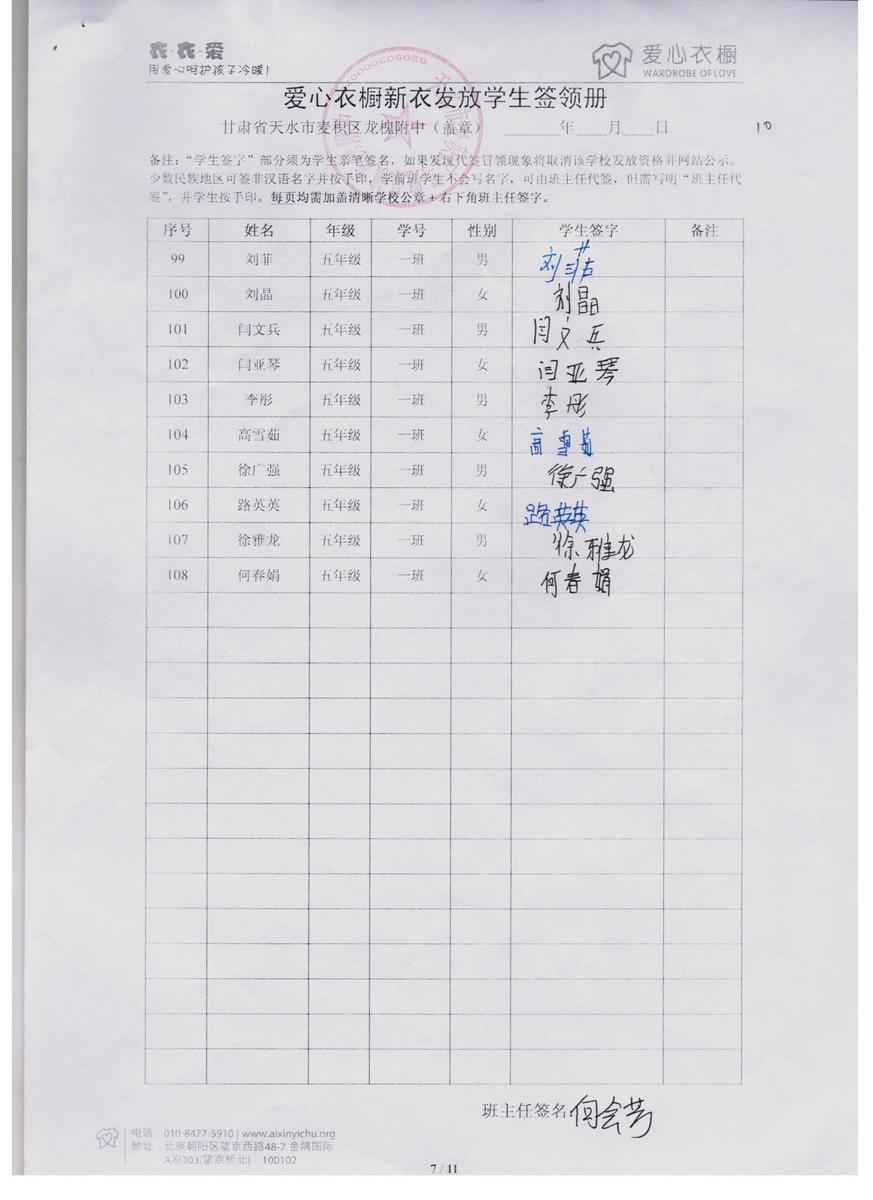 衣·衣·爱
用爱心呵护孩子冷暖!
爱心衣橱
WARDROBE OF LOVE
爱心衣橱新衣发放学生签领册
甘肃省天水市麦积区龙槐附中（盖章） ______年____月____日
10
备注：“学生签字”部分须为学生亲笔签名，如果发现代签冒领现象将取消该学校发放资格并网站公示。
少数民族地区可签非汉语名字并按手印，学前班学生不会写名字，可由班主任代签，但需写明“班主任代
签”，并学生按手印。每页均需加盖清晰学校公章+右下角班主任签字。
序号 姓名 年级 学号 性别 学生签字 备注
99 刘菲 五年级 一班 男 刘菲
100 刘晶 五年级 一班 女 刘晶
101 闫文兵 五年级 一班 男 闫文兵
102 闫亚琴 五年级 一班 女 闫亚琴
103 李彤 五年级 一班 男 李彤
104 高雪茹 五年级 一班 女 高雪茹
105 徐广强 五年级 一班 男 徐广强
106 路英英 五年级 一班 女 路英英
107 徐雅龙 五年级 一班 男 徐雅龙
108 何春娟 五年级 一班 女 何春娟
班主任签名 何会芳
电话：010-8477-5910 | www.aixinyichu.org
地址：北京朝阳区望京西路48-7 金隅国际
A座303(望京桥北) · 100102
7 / 11